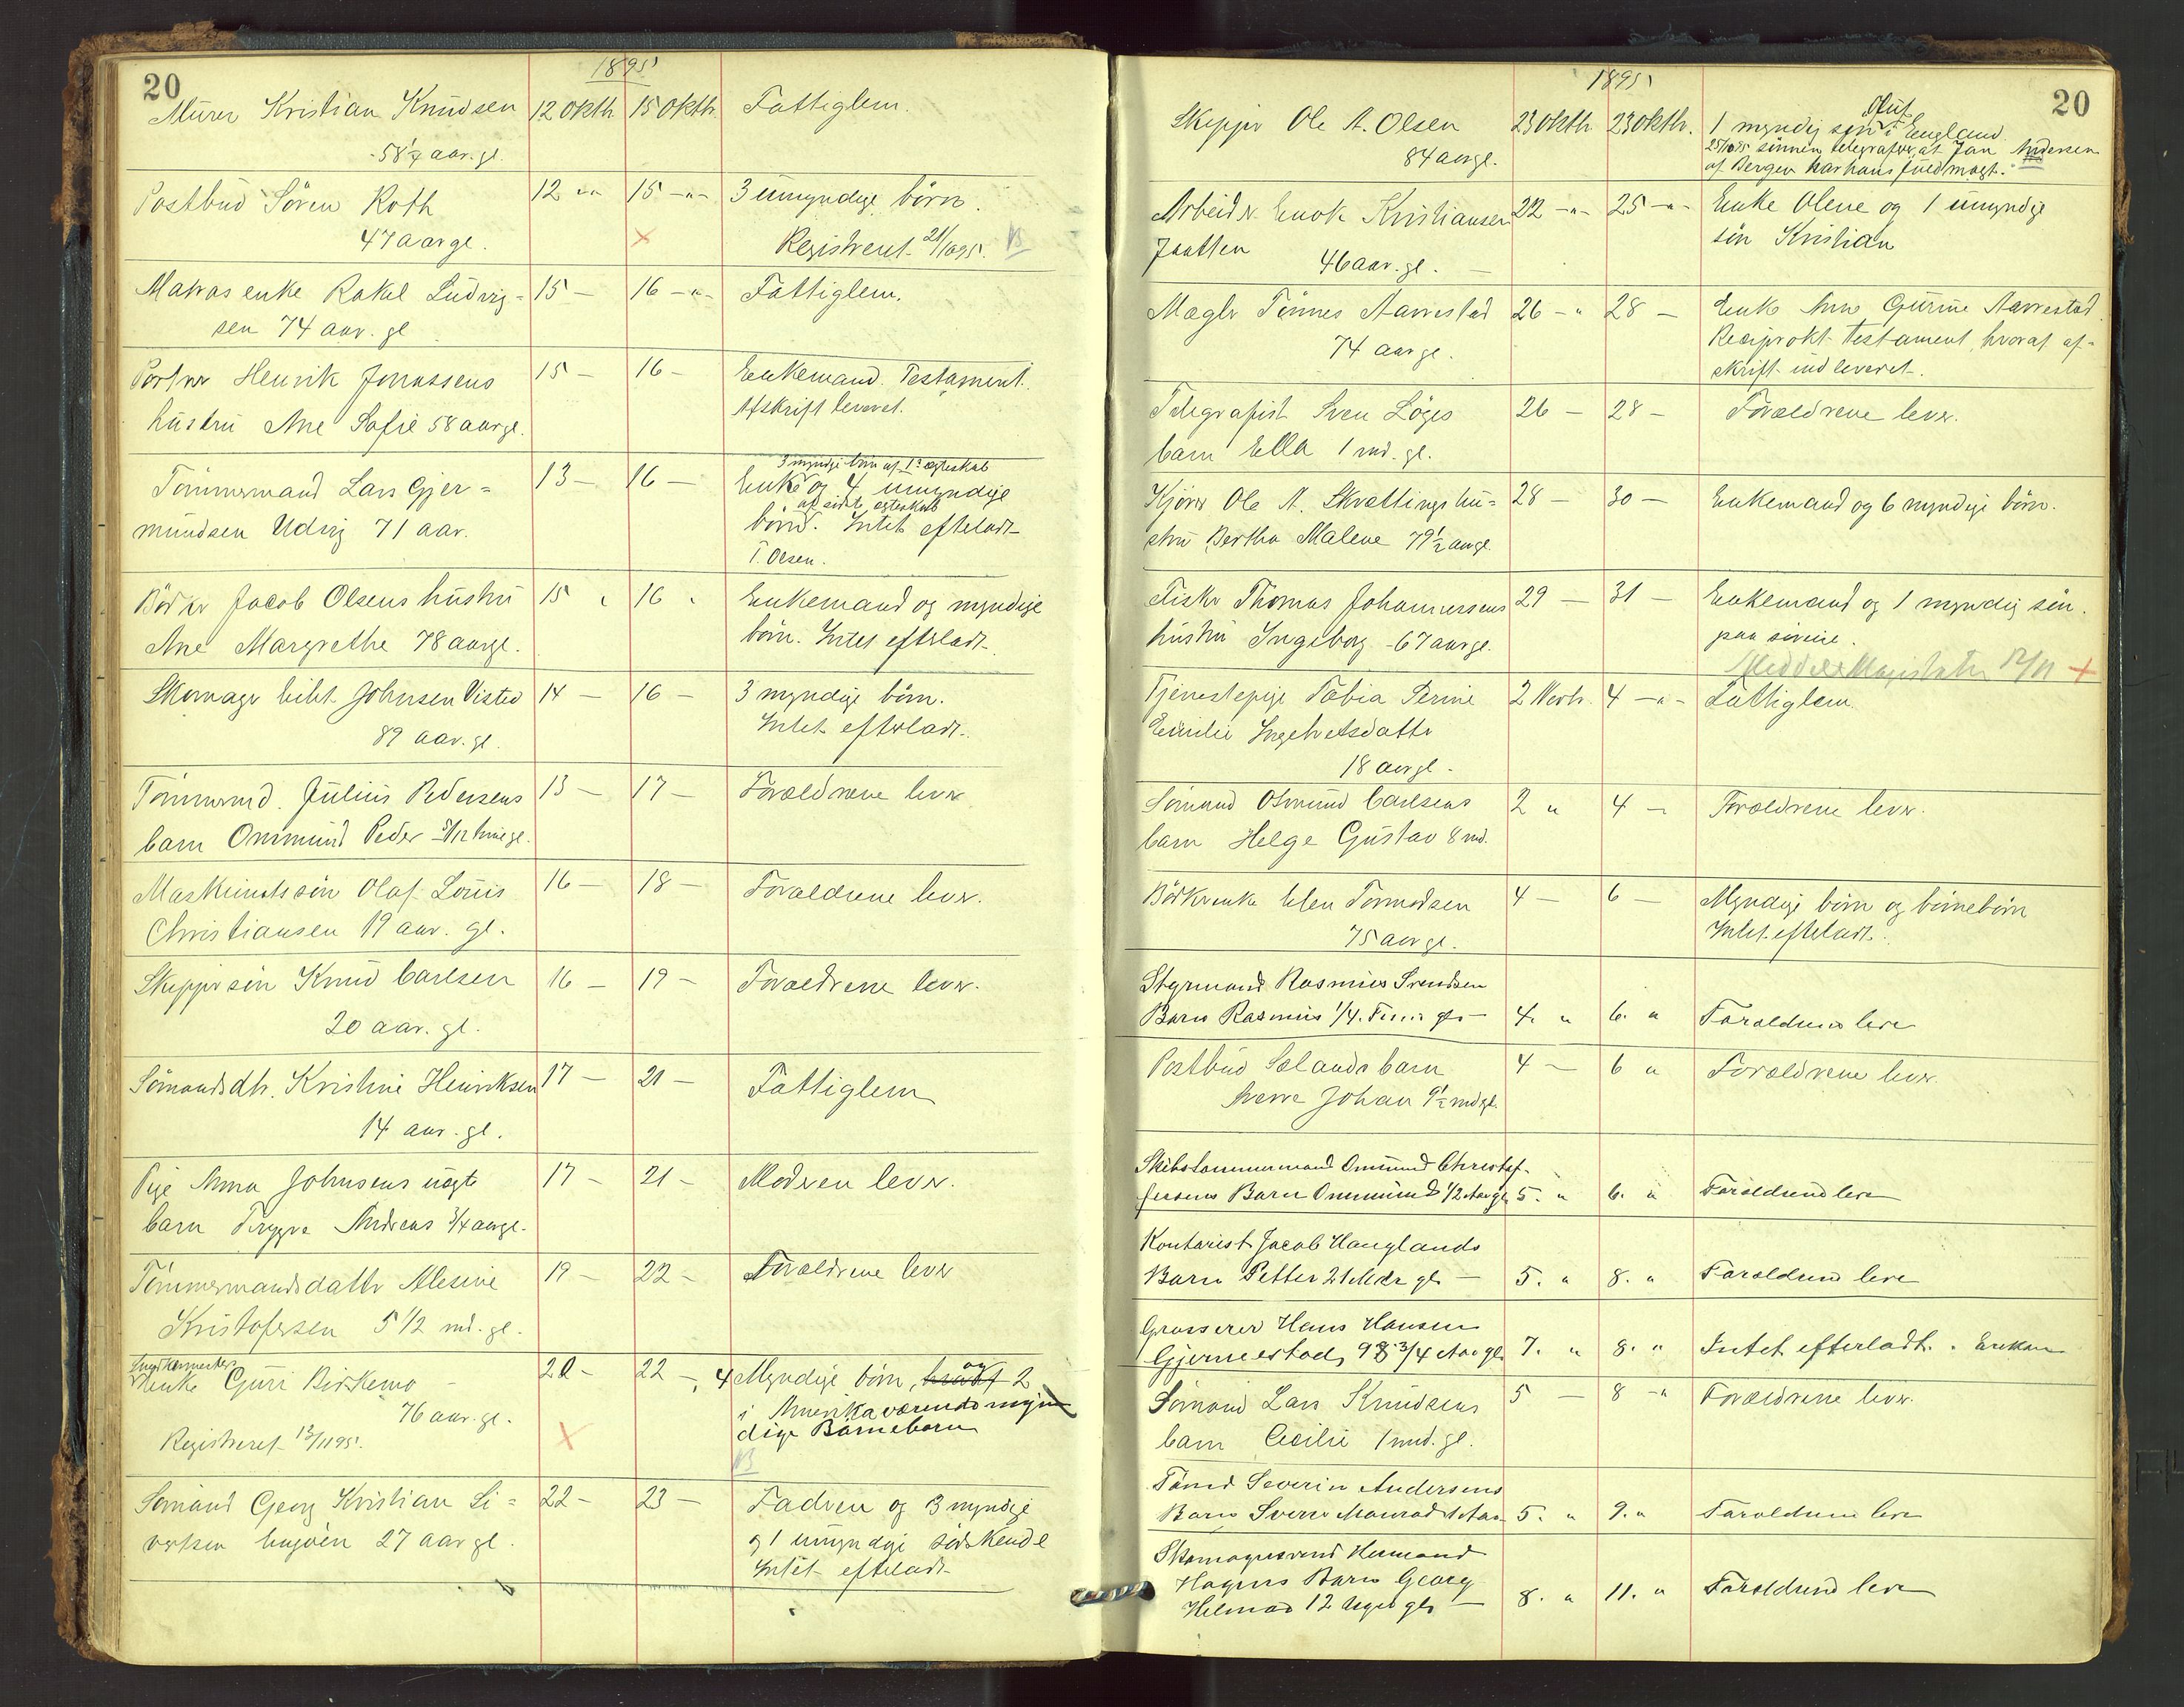 20
1895
Murer Kristian Knudsen 12 Oktb 15 Oktb. Fattiglem.
58 aar. gl.
Postbud Sören Roth 12 -"- 15 -"- 3 umyndige börn.
47 aar gl. Registreret 21/10 95.
Matros enke Rakel Ludvig= 15 — 16 -"- Fattiglem.
sen 74 aar. gl
Portner Henrik Jonassens 15 — 16 - Enkemand. Testament.
hustru Ane Sofie 58 aar gl. Afskrift leveret.
3 myndige börn af 1ste ægteskab
Tömmermand Lars Gjer= 13 — 16 — Enke og 4 umyndige
af sidste ægteskab
mundsen Udvig 71 aar. börn. Intet efterladt
T. Olsen.
Bödker Jacob Olsens hustru 15 " 16 " Enkemand og myndige
Ane Margrethe 78 aar gl. börn. Intet efterladt.
Skomager Johnsen Visted 14 — 16 — 3 myndige börn.
89 aar. gl. Intet efterladt.
Tömmermd. Julius Pedersens 13 — 17 — Forældrene lever
barn Ommund Peder
Maskinistssön Olaf Louis 16 — 18 — Forældrene lever.
Christiansen 19 aar. gl.
Skippersön Knud Carlsen 16 — 19 — Forældrene lever.
20 aar. gl.
Sömandsdtr. Kristine Henriksen 17 — 21 — Fattiglem
14 aar. gl.
Pige Anna Johnsens uægte 17 — 21 — Moderen lever.
barn Trygve Andreas 3/4 aar gl.
Tömmermandsdatter Alesine 19 — 22 — Forældrene lever
Kristofersen 5 1/2 md. gl.
enke Guri Birkemo 20 — 22 — 4 Myndige börn, og 2
76 aar. gl. i Amerika værende myn
Registreret 12/11 95. dige Børnebørn
Sömand Georg Kristian Si= 22 — 23 — Faderen og 3 myndige
vertsen Engöen 27 aar gl. og 1 umyndige södskende
Intet efterladt
20
1895
Skipper Ole A. Olsen 23 Oktb. 23 Oktb. 1 myndig sön Oluf i England.
84 aar gl. 25/10 95 sönnen telegraferer, at Jan Andersen
af Bergen har hans fuldmagt.
Arbeider Enok Kristiansen 22 -"- 25 -"- Enke Olene og 1 umyndig
Jaatten 46 aar. gl. — sön Kristian
Mægler Tönnes Aarrestad 26 -" 28 — Enke Ane Gurine Aarrestad.
74 aar gl. Reciprokt Testament, hvoraf af=
skrift indleveret.
Telegrafist Sven Löges 26 — 28 — Forældrene lever.
barn Ella 1 md. gl.
Kjörer Ole A. Skrættings hu= 28 — 30 — Enkemand og 6 myndige börn.
stru Bertha Malene 79 1/2 aar gl.
Fisker Thomas Johannesens 29 — 31 — Enkemand og 1 myndig sön.
hustru Ingeborg 67 aar gl. paa sinene.
Meddelt Magistraten 12/11
Tjenestepige Tobia Serine 2 Novb. 4 -"- Fattiglem.
Emilie Ingebretsdatter
18 aar gl.
Sömand Osmund Carlsens 2 " 4 — Forældrene lever.
barn Helge Gustav 8 md.
Bödkerenke Elen Tormodsen 4 — 6 — Myndige börn og börnebörn
75 aar gl. Intet efterladt.
Styrmand Rasmus Svendsen
Barn Rasmus 1/4 Time gl — 4. " 6. " Forældrene leve
Postbud Sælands barn 4 — 6 " Forældrene lever.
Sverre Johan 9 1/2 md gl.
Skibstømmermand Ommund Christof-
fersens Barn Ommund 1/2 Aar gl 5. " 6. " Forældrene leve
Kontorist Jacob Hauglands
Barn Petter 21 Mdr gl — 5. " 8. " Forældrene leve
Grosserer Hans Hansen
Gjernestad, 98 3/4 Aar gl 7. " 8. " Intet efterladt. Enken
Sömand Lars Knudsens 5 — 8 -" Forældrene lever.
barn Cecilie 1 md. gl.
Tömd Severin Andersens
Barn Sverre Monrad 1 Aar 5. " 9. " Forældrene leve
Skomagersvend Hermand
Hagens Barn Georg
Helmar 12 Dage gl — 8. " 11. " Forældrene leve